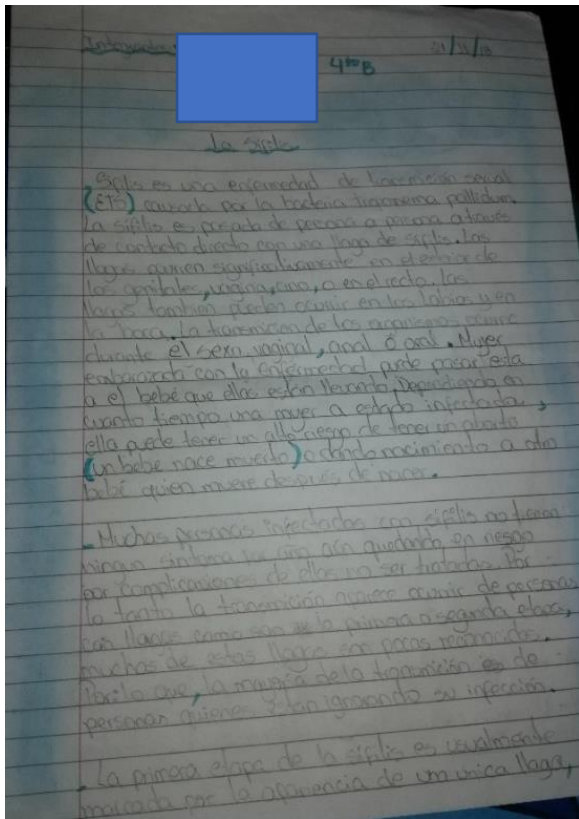 Integrantes: 21/11/18
4to B
La Sífilis
Sífilis es una enfermedad de transmición sexual
(ETS) causada por la bacteria treponema pallidum.
La sífilis es pasada de persona a persona a través
de contacto directo con una llaga de sífilis. Las
llagas ocurren significativamente en el exterior de
los genitales, vagina, ano, o en el recto. Las
llagas también pueden ocurrir en los labios y en
la boca. La transmición de los organismo ocurre
durante el sexo vaginal, anal ó oral. Mujer
embarazada con la enfermedad puede pasar esta
a el bebé que ellas están llevando. Dependiendo en
cuanto tiempo una mujer a estado infectada,
ella puede tener un alto riesgo de tener un aborto
(un bebé nace muerto) o dando nacimiento a otro
bebé quien muere después de nacer.
- Muchas personas infectadas con sífilis no tienen
ningun síntoma aún quedando en riesgo
por complicaciones de ellas no ser tratadas. Por
lo tanto la transmición aparece ocurrir de personas
con llagas como son la primera o segunda etapa,
muchas de estas llagas son pocas reconocidas.
Por lo que, la mayoría de la transmición es de
personas quienes están ignorando su infección.
- La primera etapa de la sífilis es usualmente
marcada por la apariencia de um unica llaga,